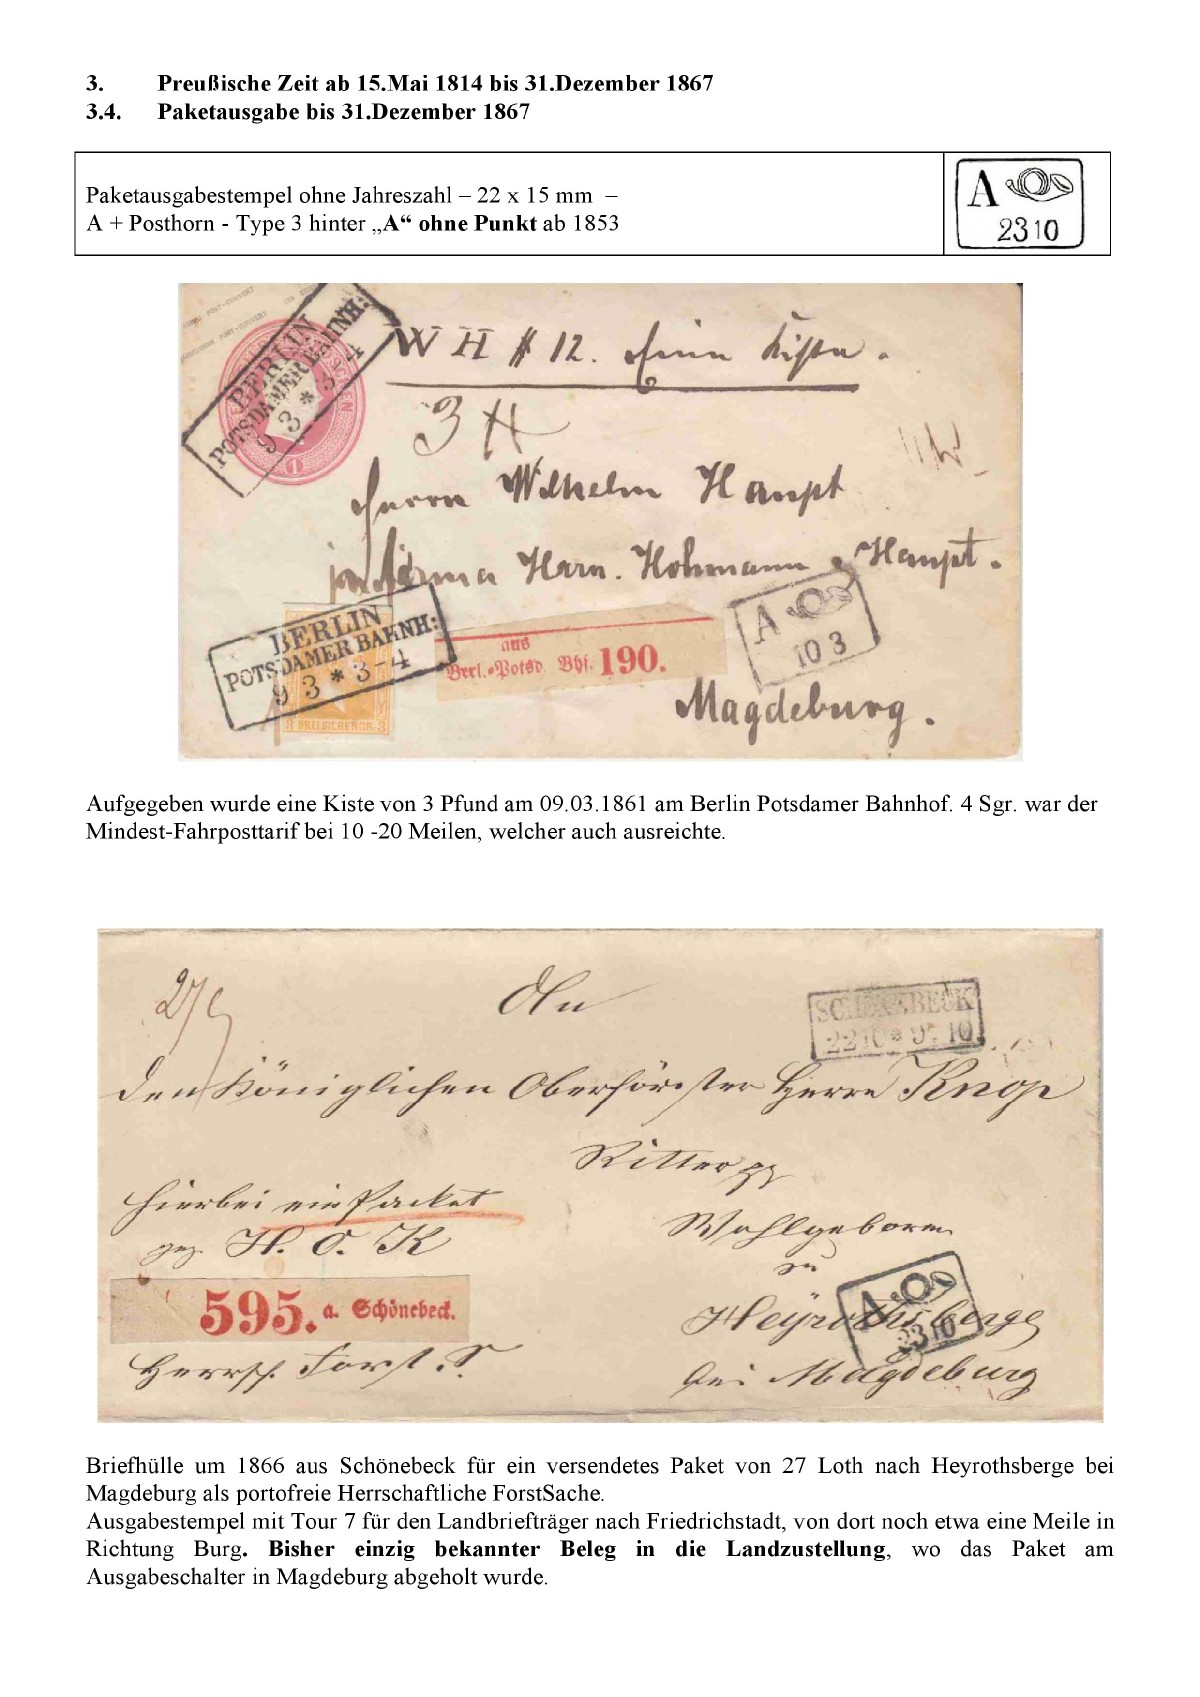 3. Preußische Zeit ab 15.Mai 1814 bis 31.Dezember 1867
3.4. Paketausgabe bis 31.Dezember 1867
Paketausgabestempel ohne Jahreszahl – 22 x 15 mm –
A + Posthorn - Type 3 hinter „A“ ohne Punkt ab 1853
A
2310
BERLIN
POTSDAMER BAHNH:
9 3 * 3-4
1
W H # 12. Eine Kiste.
3 ℔
Herrn Wilhelm Haupt
Firma Herrn. Hohmann & Haupt.
BERLIN
POTSDAMER BAHNH:
9 3 * 3-4
3 DREI SILBERGR. 3
aus
Berl.-Potsd. Bhf. 190.
A
10 3
Magdeburg.
Aufgegeben wurde eine Kiste von 3 Pfund am 09.03.1861 am Berlin Potsdamer Bahnhof. 4 Sgr. war der
Mindest-Fahrposttarif bei 10 -20 Meilen, welcher auch ausreichte.
An
SCHÖNEBECK
22 10 * 9-10
den Königlichen Oberförster Herrn Knop
Ritter pp
hierbei ein Packet
Wohlgeboren
gez. H. O. K
zu
595. a. Schönebeck.
Heyrothsberge
A
23 10
Herrsch. Forst. S.
bei Magdeburg
Briefhülle um 1866 aus Schönebeck für ein versendetes Paket von 27 Loth nach Heyrothsberge bei
Magdeburg als portofreie Herrschaftliche ForstSache.
Ausgabestempel mit Tour 7 für den Landbriefträger nach Friedrichstadt, von dort noch etwa eine Meile in
Richtung Burg. Bisher einzig bekannter Beleg in die Landzustellung, wo das Paket am
Ausgabeschalter in Magdeburg abgeholt wurde.